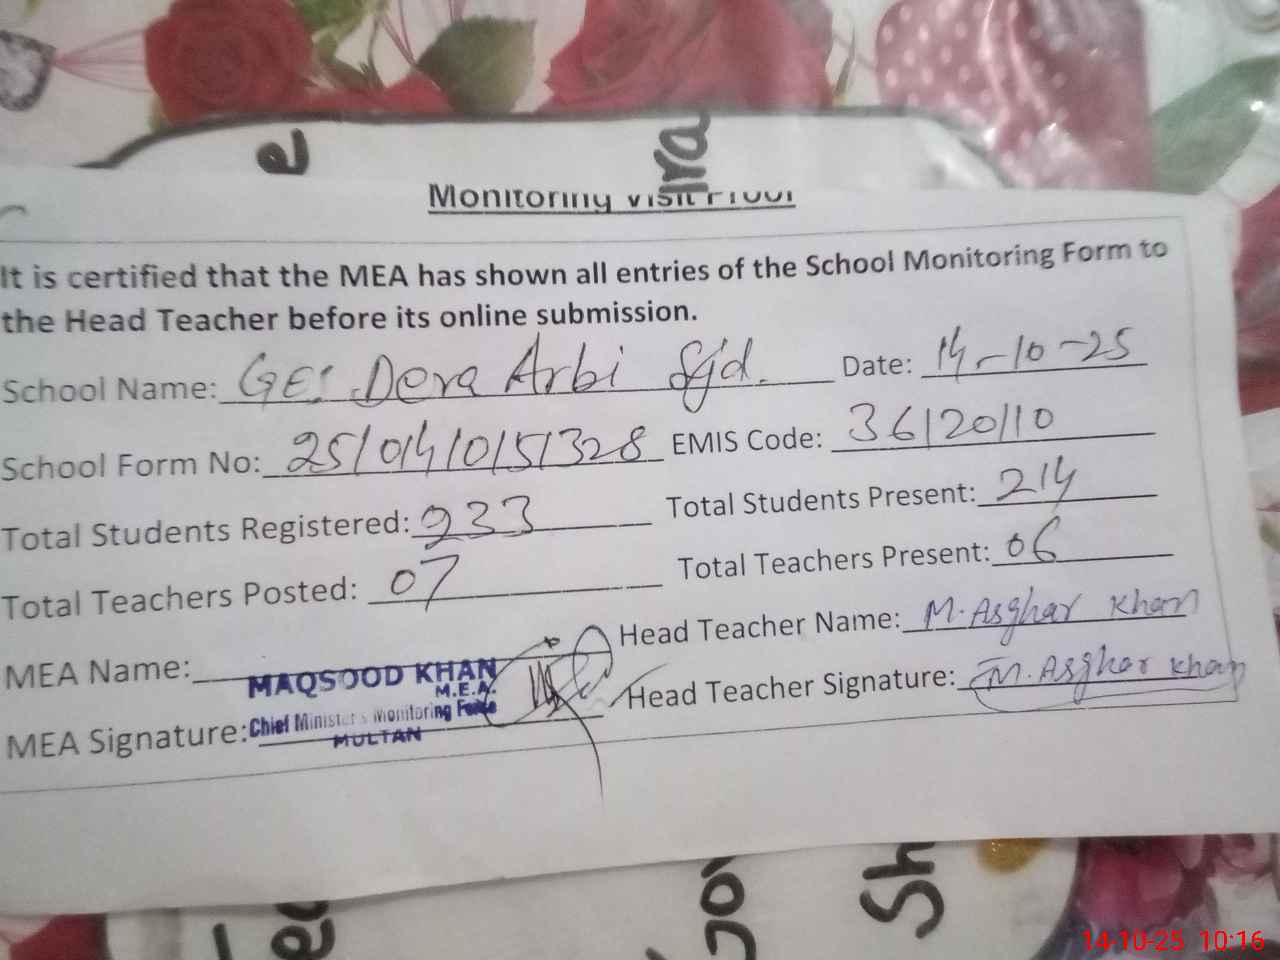 e
ra
Monitoring Visit Proof
It is certified that the MEA has shown all entries of the School Monitoring Form to
the Head Teacher before its online submission.
School Name: GES Dera Arbi Sjd. Date: 14-10-25
School Form No: 25/04/05/328 EMIS Code: 36120110
Total Students Registered: 233 Total Students Present: 214
Total Teachers Posted: 07 Total Teachers Present: 06
MEA Name: Head Teacher Name: M. Asghar Khan
MAQSOOD KHAN
M.E.A.
MEA Signature: Head Teacher Signature: M. Asghar Khan
Chief Minister's Monitoring Force
MULTAN
Sh
14-10-25 10:16